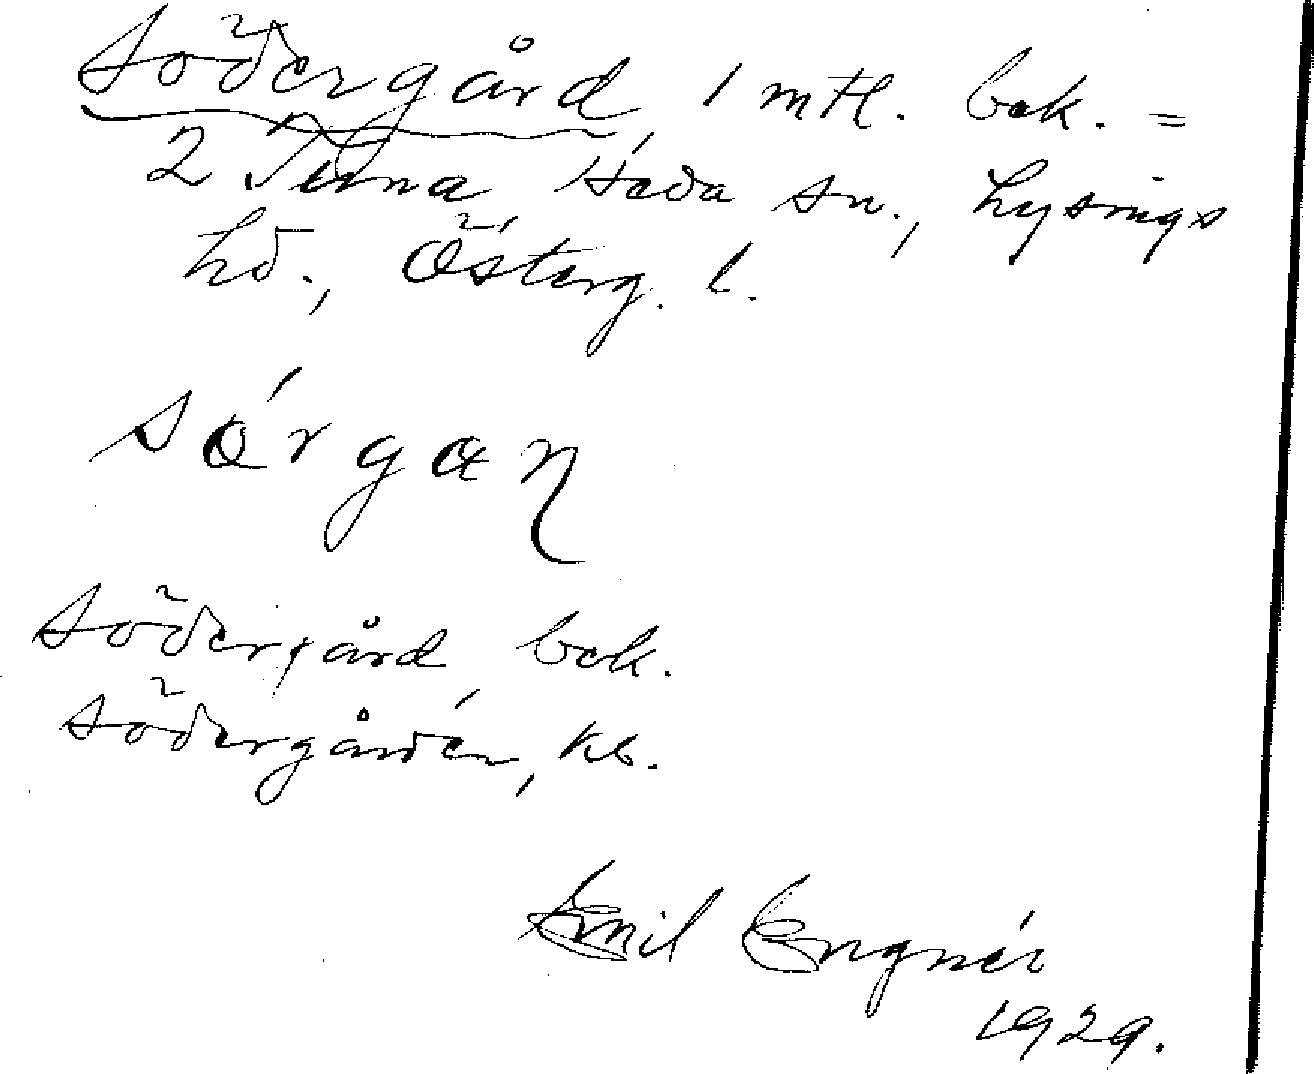 Södergård, 1 mtl. bek. =
2 Tuna Heda sn., Lysings
hd., Österg. l.
sǿrgan
Södergård bek.
Södergården, kb.
Emil Engnér
1929.